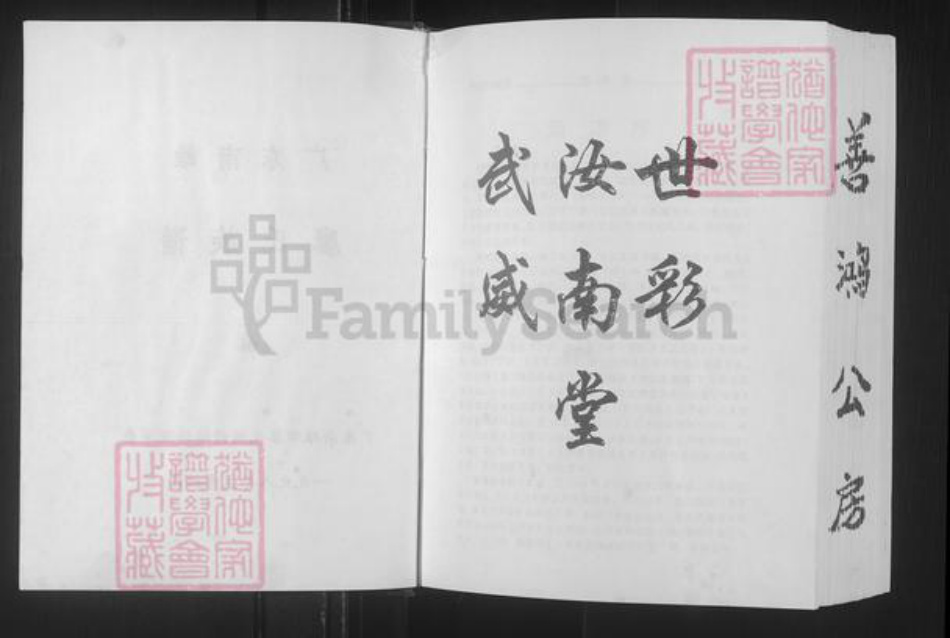 善鴻公房
世彩
汝南堂
武威
猶他家
譜學會
收藏
猶他家
譜學會
收藏
FamilySearch